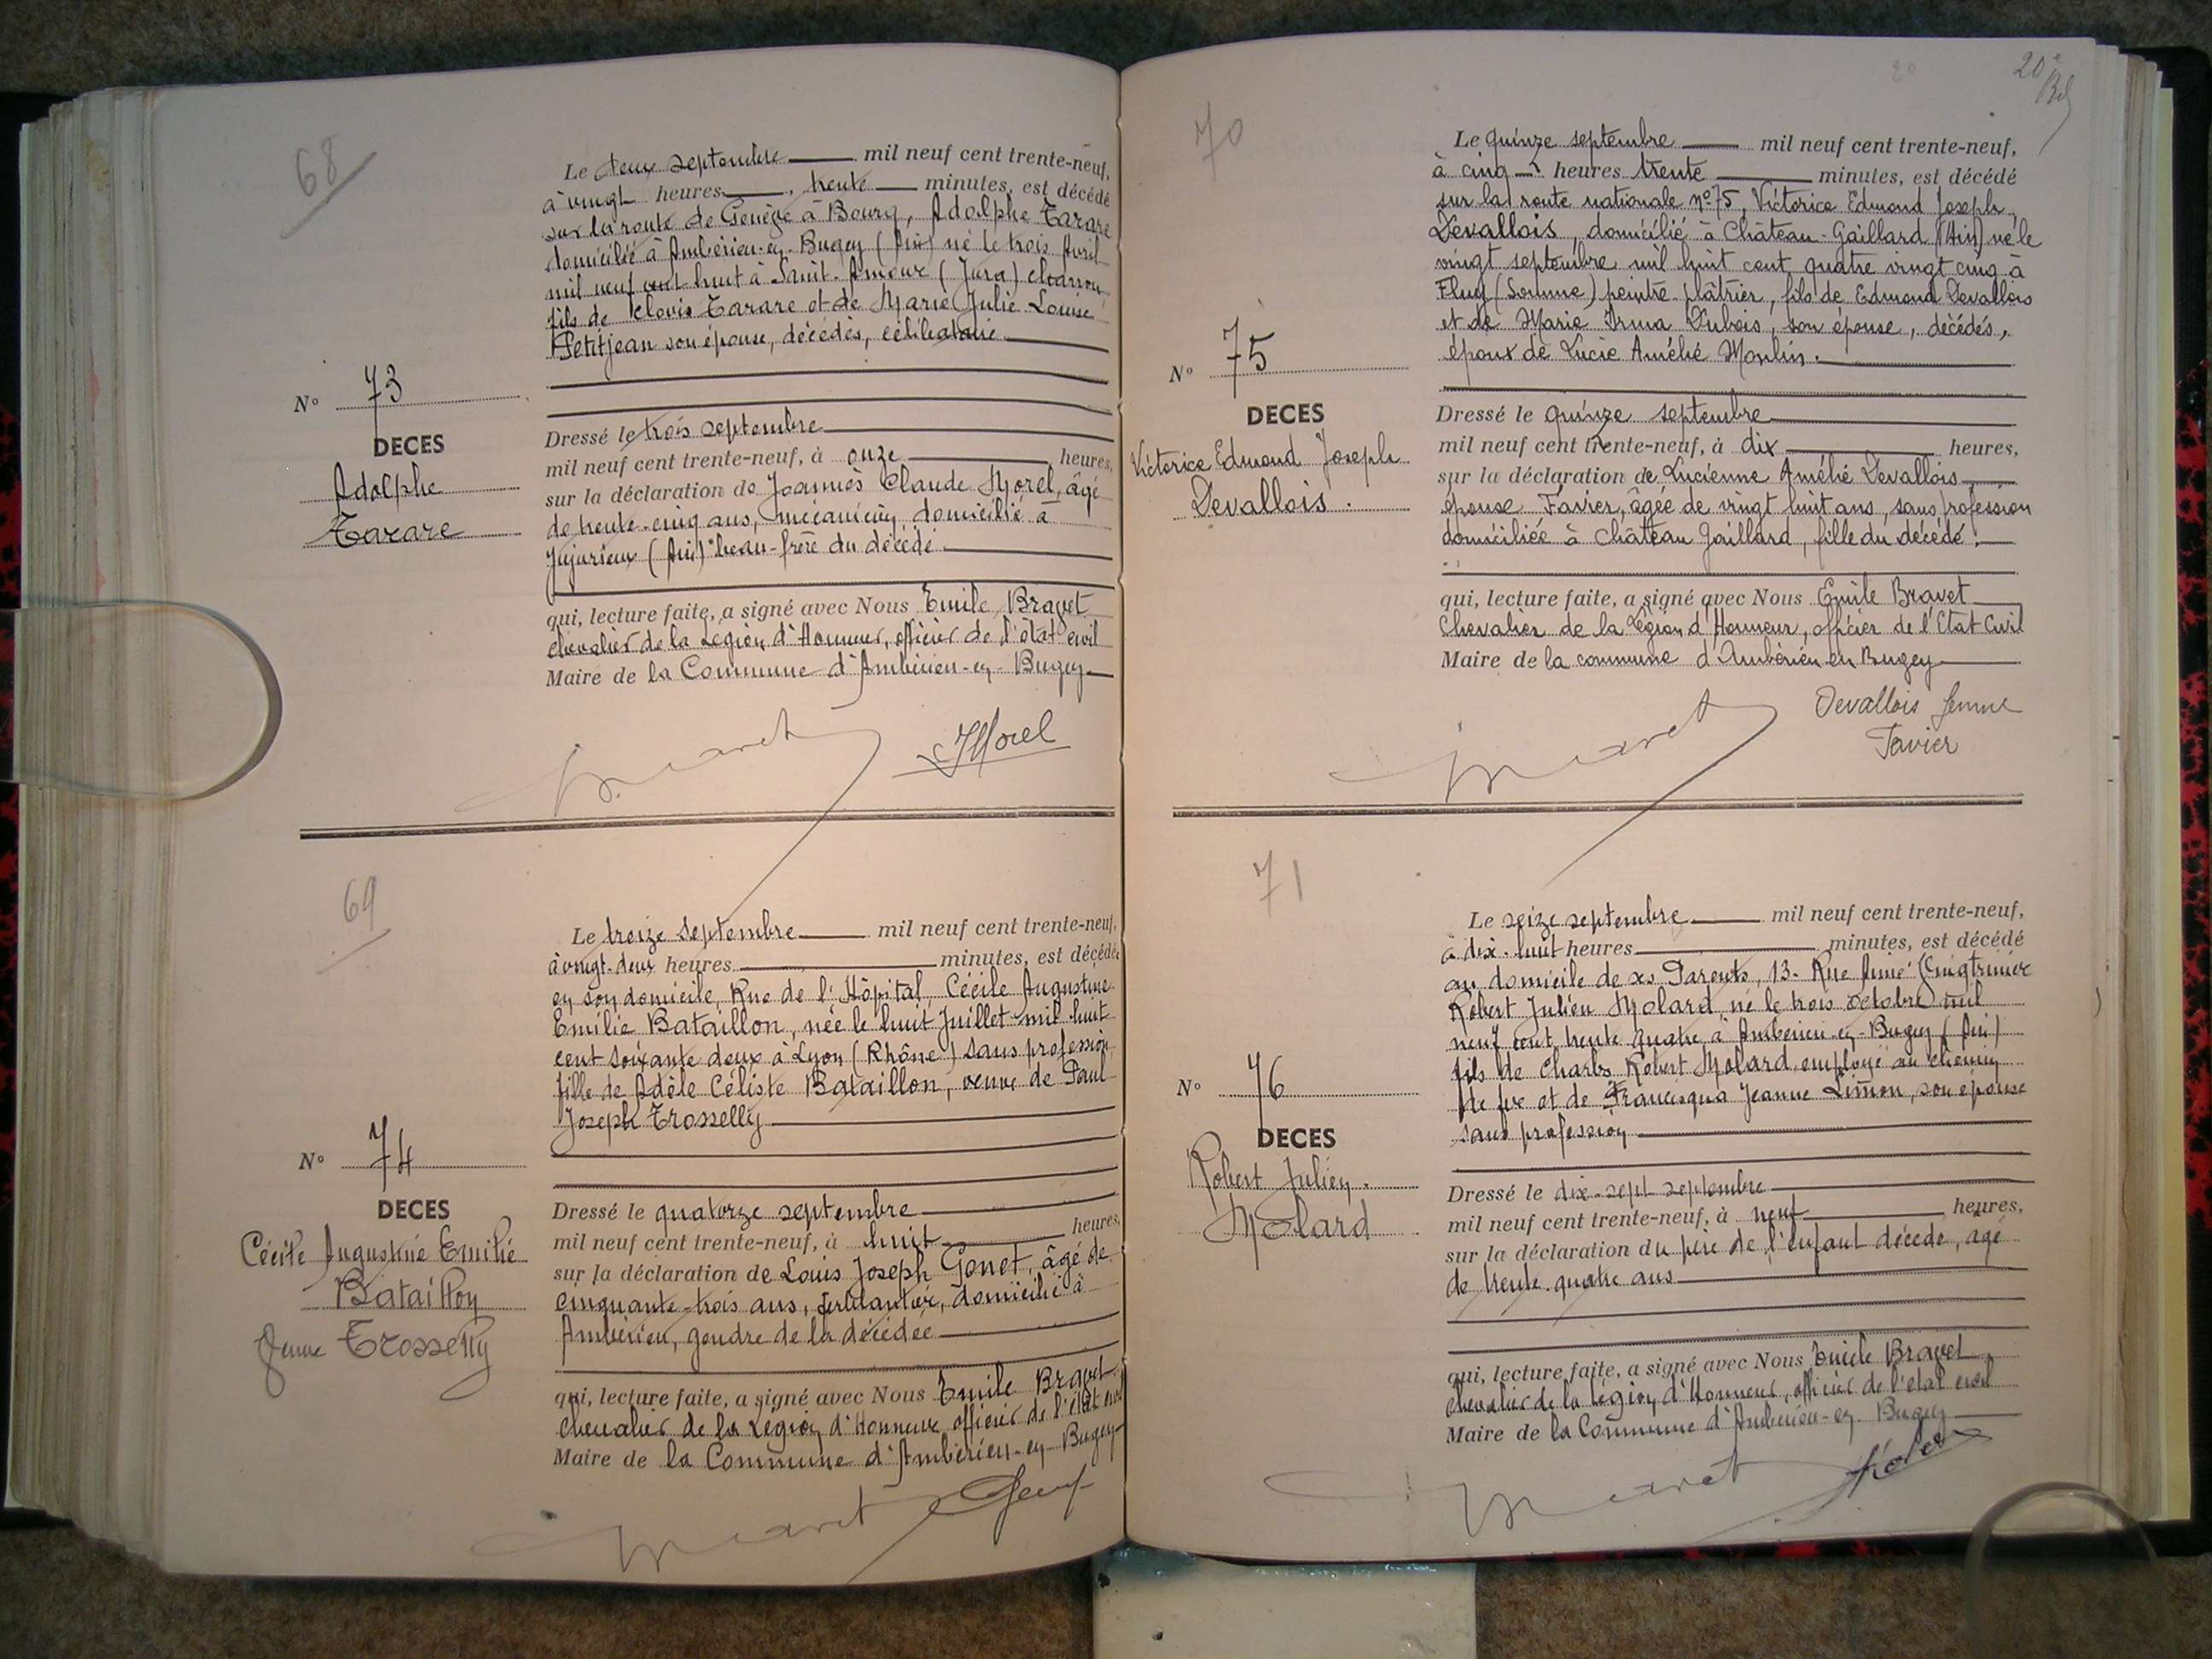 68
Le deux septembre mil neuf cent trente-neuf,
à vingt heures, trente minutes, est décédé
sur la route de Genève à Bourg, Adolphe Tarare
domicilié à Ambérieu-en-Bugey (Ain) né le trois Avril
mil neuf cent huit à Saint-Amour (Jura)
fils de Clovis Tarare et de Marie Julie Louise
Petitjean son épouse, décédés, célibataire
N° 73
DECES
Adolphe
Tarare
Dressé le trois septembre
mil neuf cent trente-neuf, à onze heures,
sur la déclaration de Joannès Claude Morel, âgé
de trente-cinq ans, mécanicien, domicilié à
Jujurieux (Ain) beau-frère du décédé
qui, lecture faite, a signé avec Nous Emile Bravet
chevalier de la Légion d'Honneur, officier de l'état civil
Maire de la Commune d'Ambérieu-en-Bugey
Bravet
JMorel
69
Le treize septembre mil neuf cent trente-neuf,
à vingt-deux heures minutes, est décédée
en son domicile, Rue de l'Hôpital, Cécile Augustine
Emilie Bataillon, née le huit Juillet mil huit
cent soixante deux à Lyon (Rhône) sans profession
fille de Adèle Céliste Bataillon, veuve de Paul
Joseph Trosselly
N° 74
DECES
Cécile Augustine Emilie
Bataillon
femme Trosselly
Dressé le quatorze septembre
mil neuf cent trente-neuf, à huit heures,
sur la déclaration de Louis Joseph Gonet, âgé de
cinquante-trois ans, ferblantier, domicilié à
Ambérieu, gendre de la décédée
qui, lecture faite, a signé avec Nous Emile Bravet
chevalier de la Légion d'Honneur officier de l'état civil
Maire de la Commune d'Ambérieu-en-Bugey
Bravet
20
20e
70
Le quinze septembre mil neuf cent trente-neuf,
à cinq heures trente minutes, est décédé
sur la route nationale n°75, Victorice Edmond Joseph
Devallois, domicilié à Château-Gaillard (Ain) né le
vingt septembre mil huit cent quatre vingt cinq à
Fluy (Somme) peintre plâtrier, fils de Edmond Devallois
et de Marie Irma Dubois, son épouse, décédés,
époux de Lucie Amélie Moulin.
N° 75
DECES
Victorice Edmond Joseph
Devallois.
Dressé le quinze septembre
mil neuf cent trente-neuf, à dix heures,
sur la déclaration de Lucienne Amélie Devallois
épouse Favier, âgée de vingt huit ans, sans profession
domiciliée à Château Gaillard, fille du décédé.
qui, lecture faite, a signé avec Nous Emile Bravet
Chevalier de la Légion d'Honneur, officier de l'Etat Civil
Maire de la commune d'Ambérieu en Bugey
Bravet
Devallois femme
Favier
71
Le seize septembre mil neuf cent trente-neuf,
à dix-huit heures minutes, est décédé
au domicile de ses Parents, 13. Rue Aimé Cinqtrinier
Robert Julien Molard, né le trois octobre mil
neuf cent trente quatre à Ambérieu-en-Bugey (Ain)
fils de Charles Robert Molard employé au chemin
de fer et de Francisqua Jeanne Limon, son épouse
sans profession
N° 76
DECES
Robert Julien.
Molard
Dressé le dix-sept septembre
mil neuf cent trente-neuf, à neuf heures,
sur la déclaration du père de l'enfant décédé, âgé
de trente quatre ans
qui, lecture faite, a signé avec Nous Emile Bravet,
chevalier de la Légion d'Honneur, officier de l'état civil
Maire de la Commune d'Ambérieu-en-Bugey
Bravet